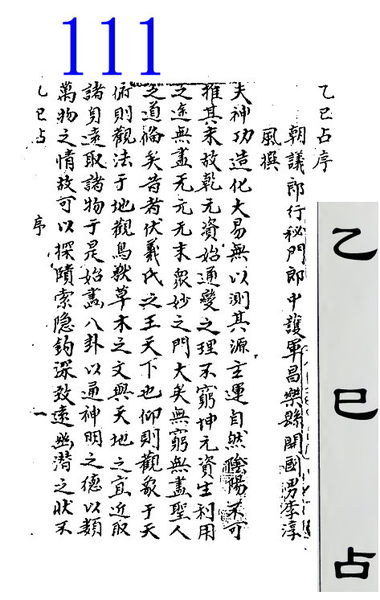 111
乙巳占
乙巳占序
朝議郎行秘門郎中護軍昌樂縣開國男李淳
風撰
夫神功造化大易無以測其源玄運自然陰陽不可
推其末故乾元資始通變之理不窮坤元資生利用
之途無盡无元无末衆妙之門大矣無窮無盡聖人
之道備矣昔者伏羲氏之王天下也仰則觀象于天
俯則觀法于地觀鳥獸草木之文與天地之宜近取
諸身遠取諸物于是始畫八卦以通神明之德以類
萬物之情故可以探賾索隐鈎深致遠幽潛之狀不
乙巳占 序 一